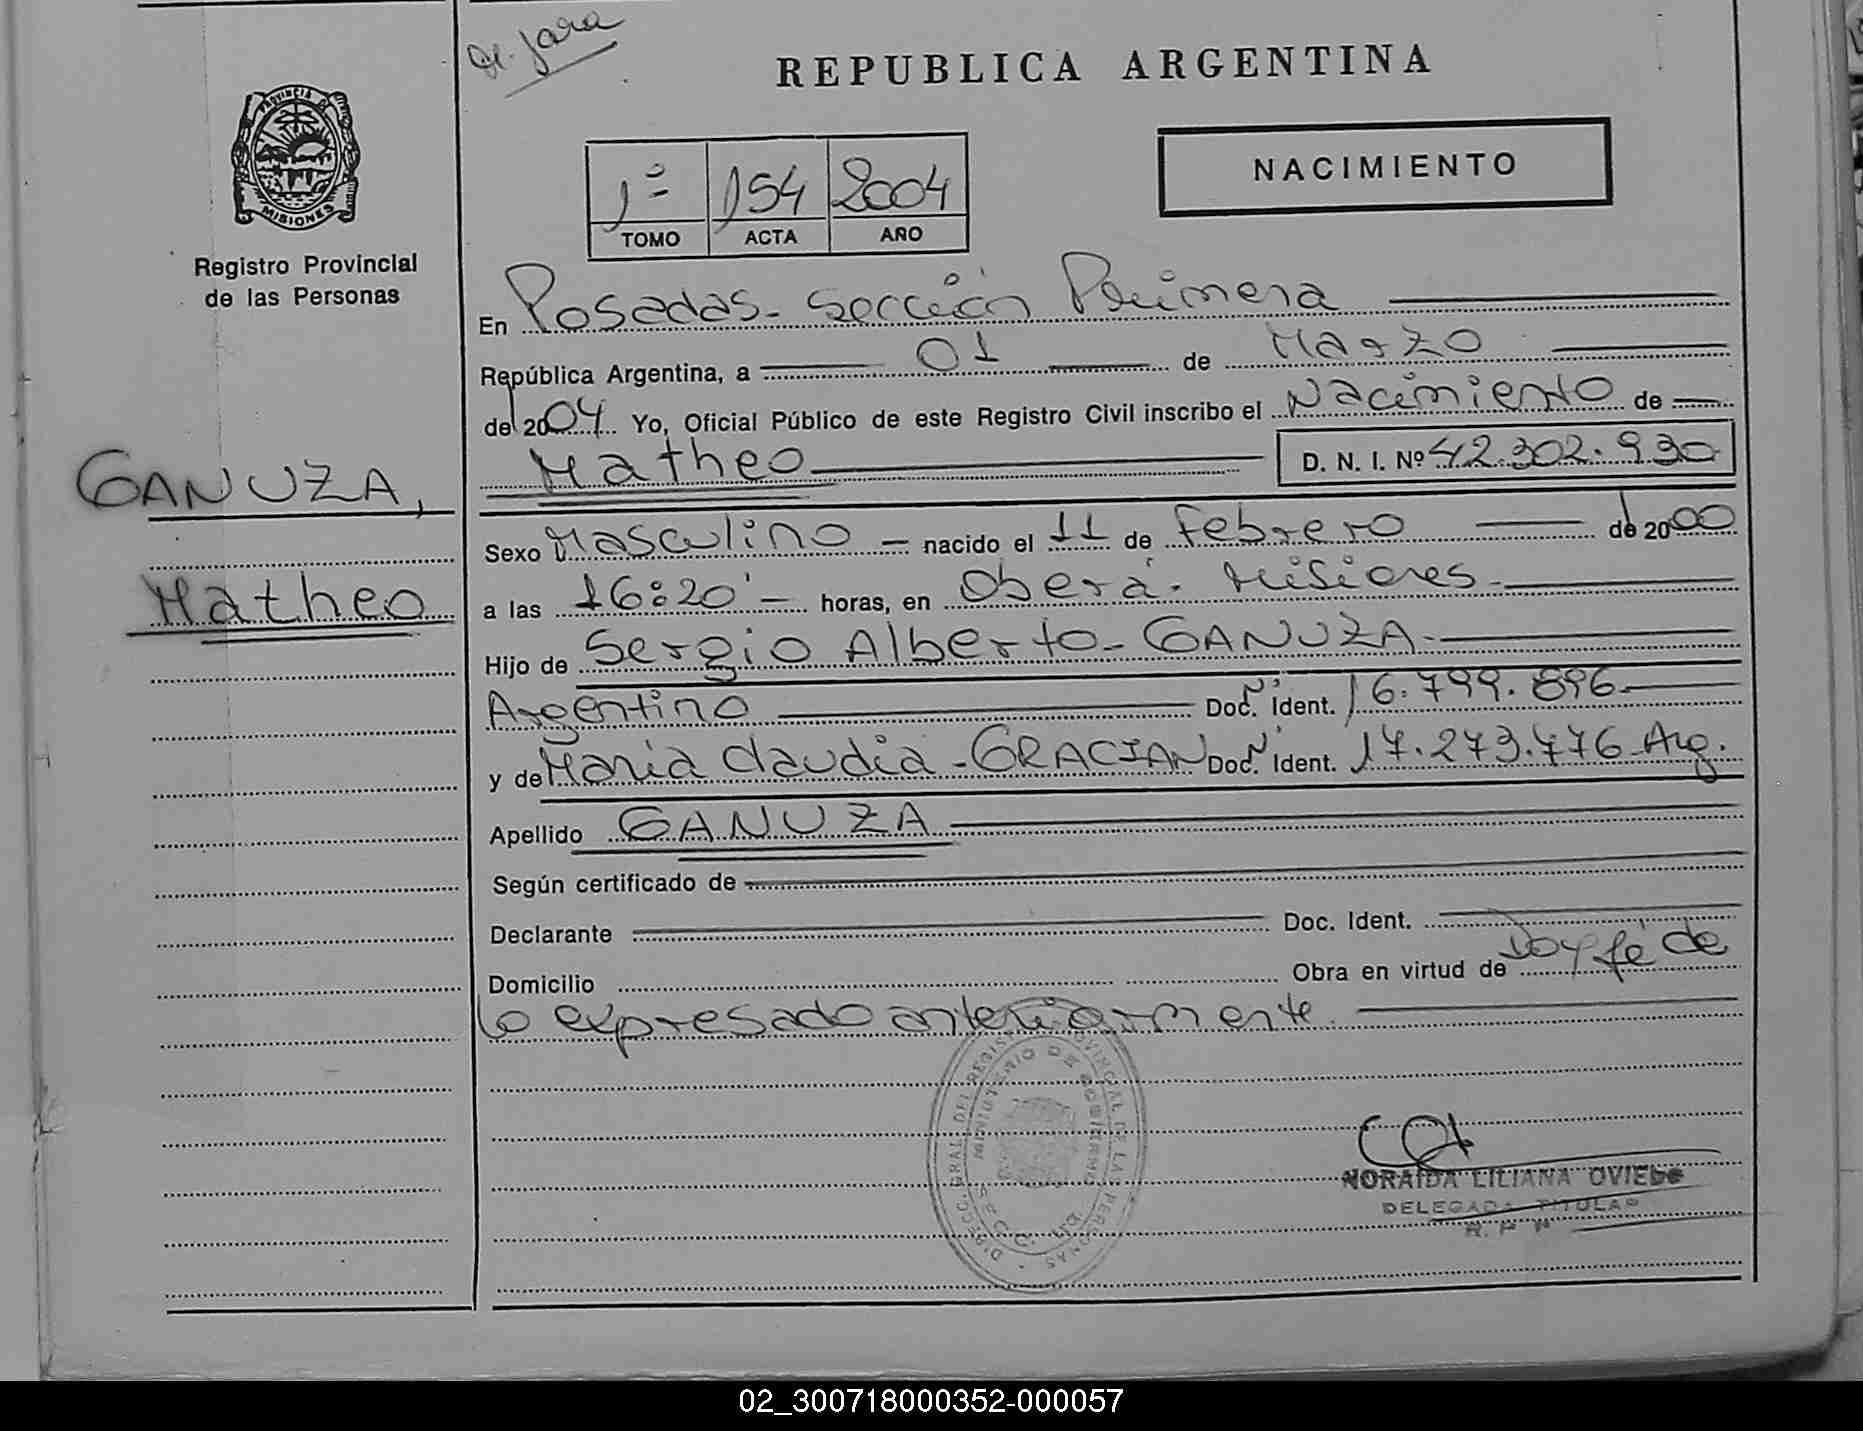 REPUBLICA ARGENTINA
PROVINCIA DE
MISIONES
Registro Provincial
de las Personas
1º 154 2004
TOMO ACTA AÑO
NACIMIENTO
GANUZA,
Matheo
En Posadas - Sección Primera
República Argentina, a 01 de Marzo
de 2004 Yo, Oficial Público de este Registro Civil inscribo el Nacimiento de
Matheo D. N. I. Nº 42.302.930
Sexo Masculino nacido el 11 de Febrero de 2000
a las 16:20' horas, en Oberá - Misiones
Hijo de Sergio Alberto - GANUZA
Argentino Doc. Ident. 16.799.896
y de Maria Claudia - GRACIAN Doc. Ident. 17.273.776 Arg.
Apellido GANUZA
Según certificado de
Declarante Doc. Ident.
Domicilio Obra en virtud de Doy fé de
lo expresado anteriormente
DIRECC. GRAL. DEL REGISTRO PROVINCIAL DE LAS PERSONAS
MINISTERIO DE GOBIERNO
NORAIDA LILIANA OVIEDO
DELEGADA TITULAR
02_300718000352-000057